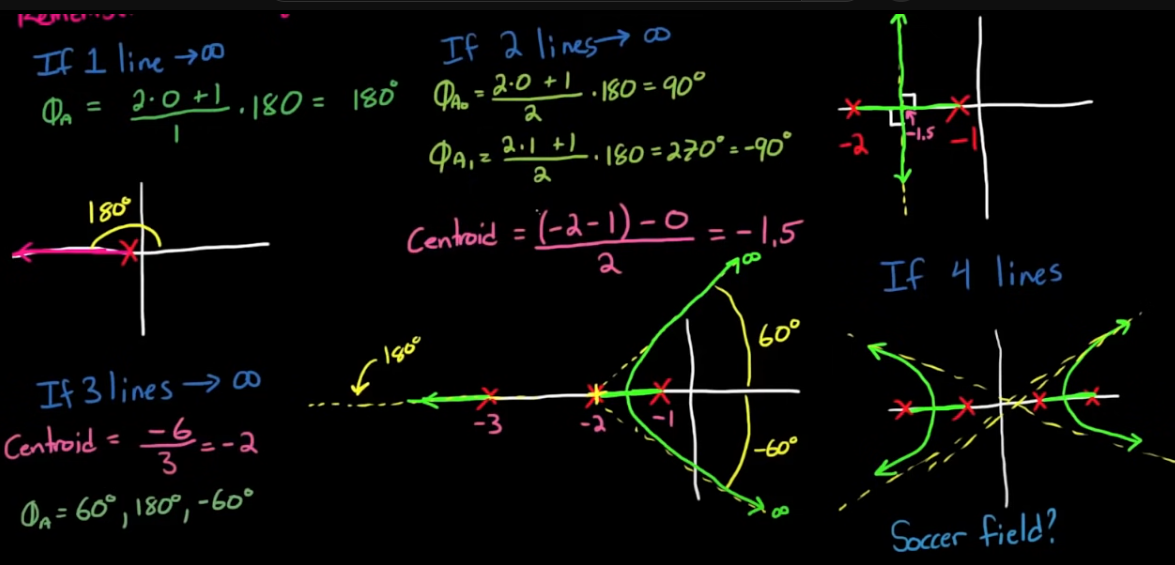 If 1 line →∞
Φ_A = (2·0+1)/1 ·180 = 180°
180°
If 2 lines→ ∞
Φ_A₀ = (2·0+1)/2 ·180 = 90°
Φ_A₁ = (2·1+1)/2 ·180 = 270° = -90°
Centroid = ((-2-1)-0)/2 = -1.5
-2
-1.5
-1
If 3 lines → ∞
Centroid = -6/3 = -2
Φ_A = 60°, 180°, -60°
180°
-3
-2
-1
∞
60°
-60°
∞
If 4 lines
Soccer field?